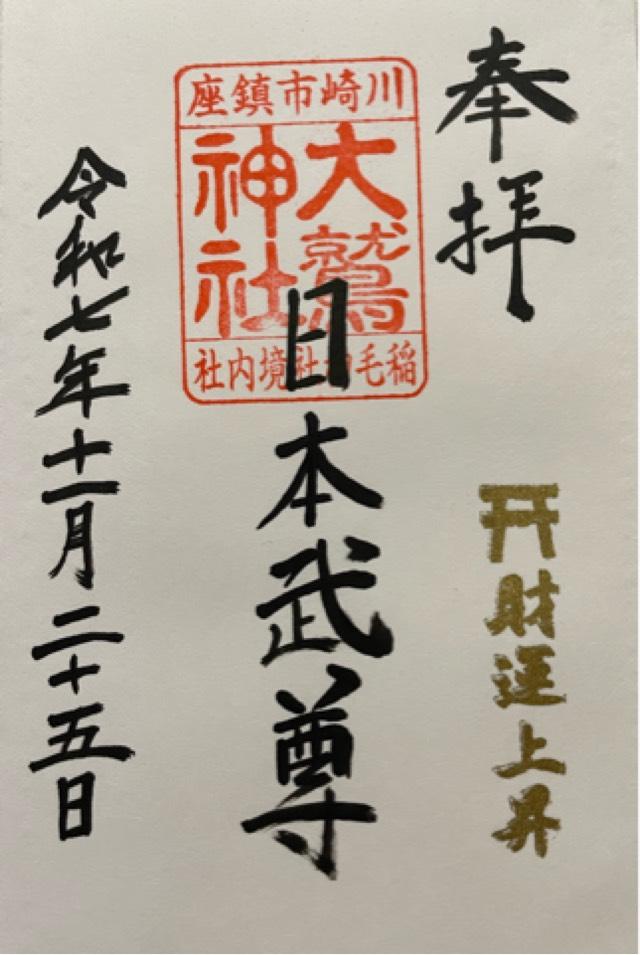 奉拝
財運上昇
川崎市鎮座
大鷲
神社
稲毛神社境内社
日本武尊
令和七年十一月二十五日